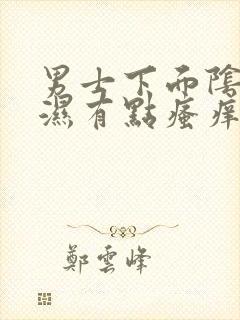 男士下面陰
濕有點瘙癢
鄭雲峰